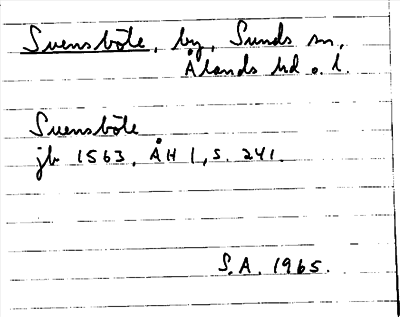 Svensböle, by, Sunds sn,
Ålands hd o. l.
Svensböle
jb 1563, ÅH 1, s. 241.
S.A. 1965.